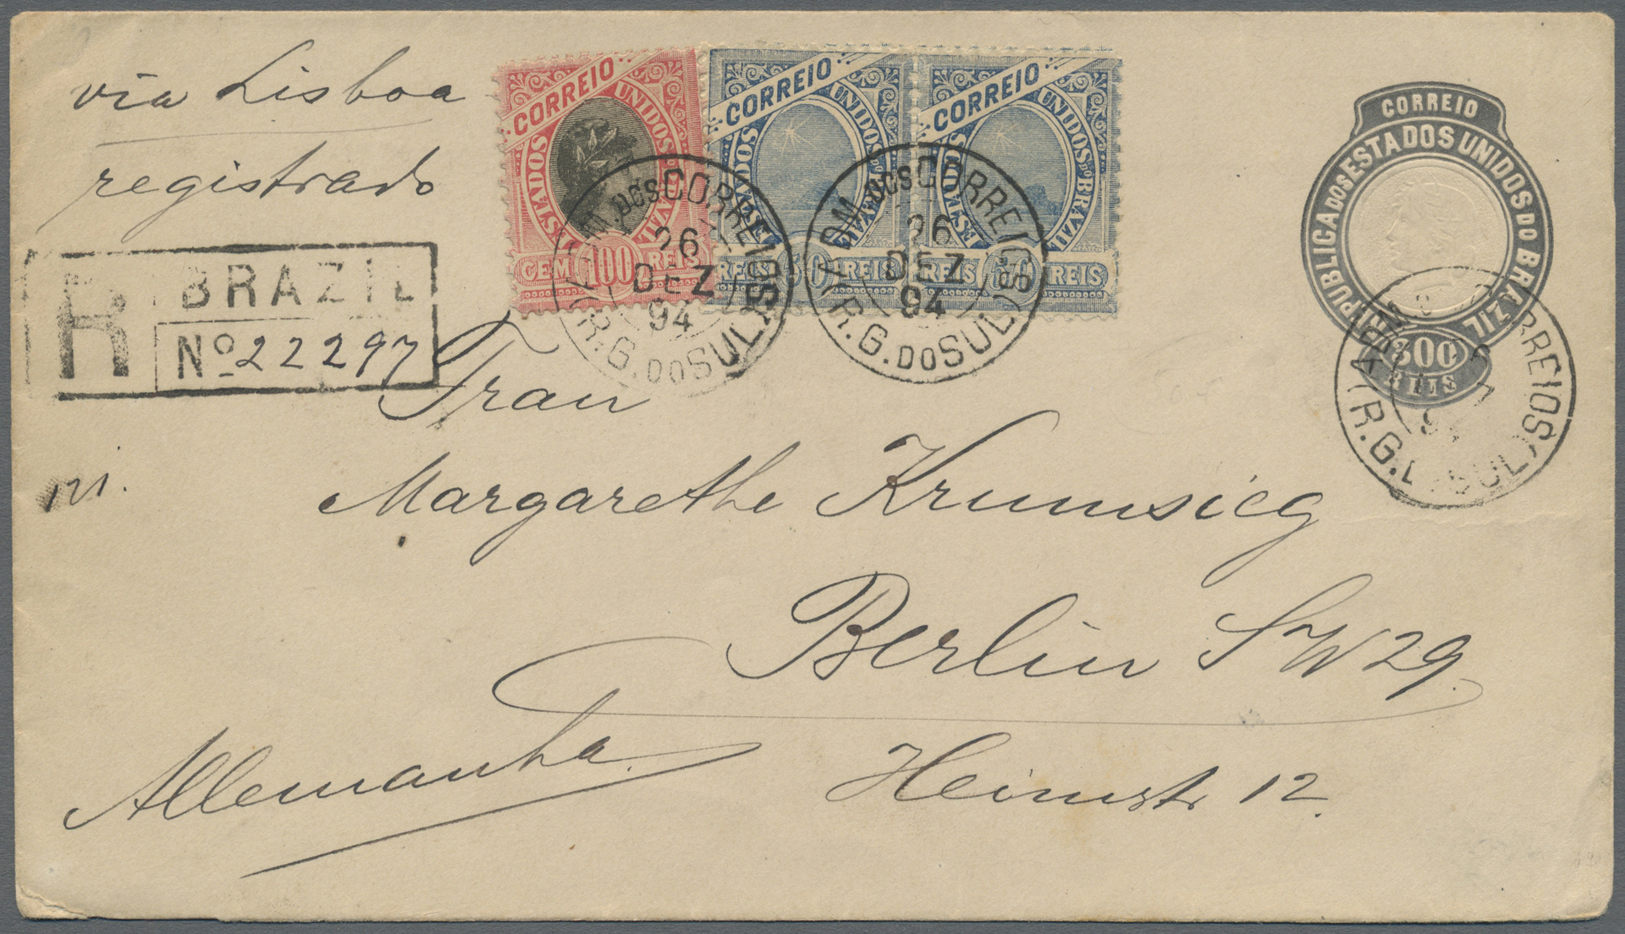 via Lisboa
registrado
R BRAZIL
Nº 22297
CORREIO
ESTADOS UNIDOS DO BRAZIL
CEM 100 REIS
CORREIO
ESTADOS UNIDOS DO BRAZIL
REIS REIS
CORREIO
ESTADOS UNIDOS DO BRAZIL
REIS REIS
ADM. DOS CORREIOS
26
DEZ
94
R.G. DO SUL
ADM. DOS CORREIOS
26
DEZ
94
R.G. DO SUL
CORREIO
REPUBLICA DOS ESTADOS UNIDOS DO BRAZIL
300
REIS
CORREIOS
R.G. SUL
Frau
Margarethe Krumsieg
Berlin SW 29.
Allemanha
Heimstr 12.